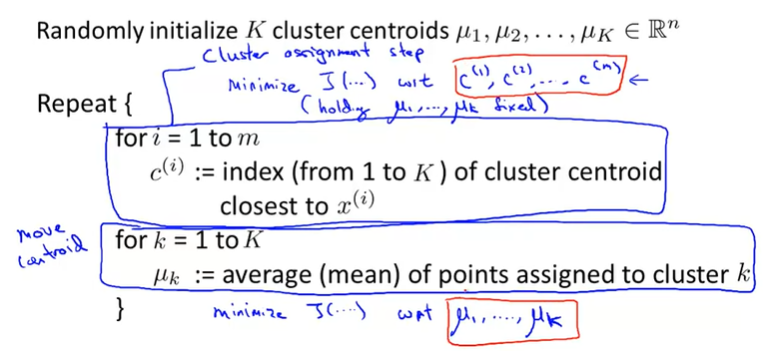 Randomly initialize K cluster centroids μ₁, μ₂, . . . , μ_K ∈ ℝⁿ
Cluster assignment step
Minimize J(...) wrt c⁽¹⁾, c⁽²⁾, ... c⁽ᵐ⁾ ←
(holding μ₁, ..., μ_K fixed)
Repeat {
for i = 1 to m
c⁽ⁱ⁾ := index (from 1 to K ) of cluster centroid
closest to x⁽ⁱ⁾
move
centroid
for k = 1 to K
μ_k := average (mean) of points assigned to cluster k
}
minimize J(...) wrt μ₁, ..., μ_K